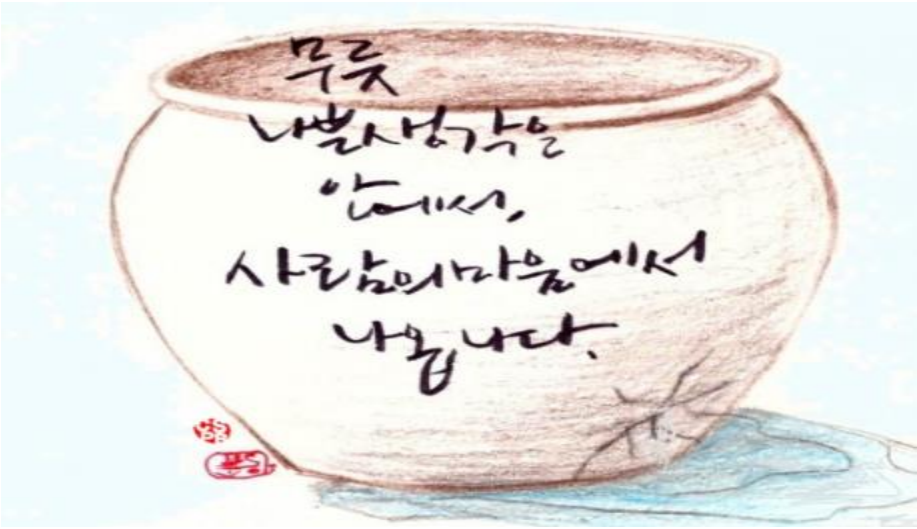 무릇
나쁜생각은
안에서,
사람의마음에서
나옵니다.